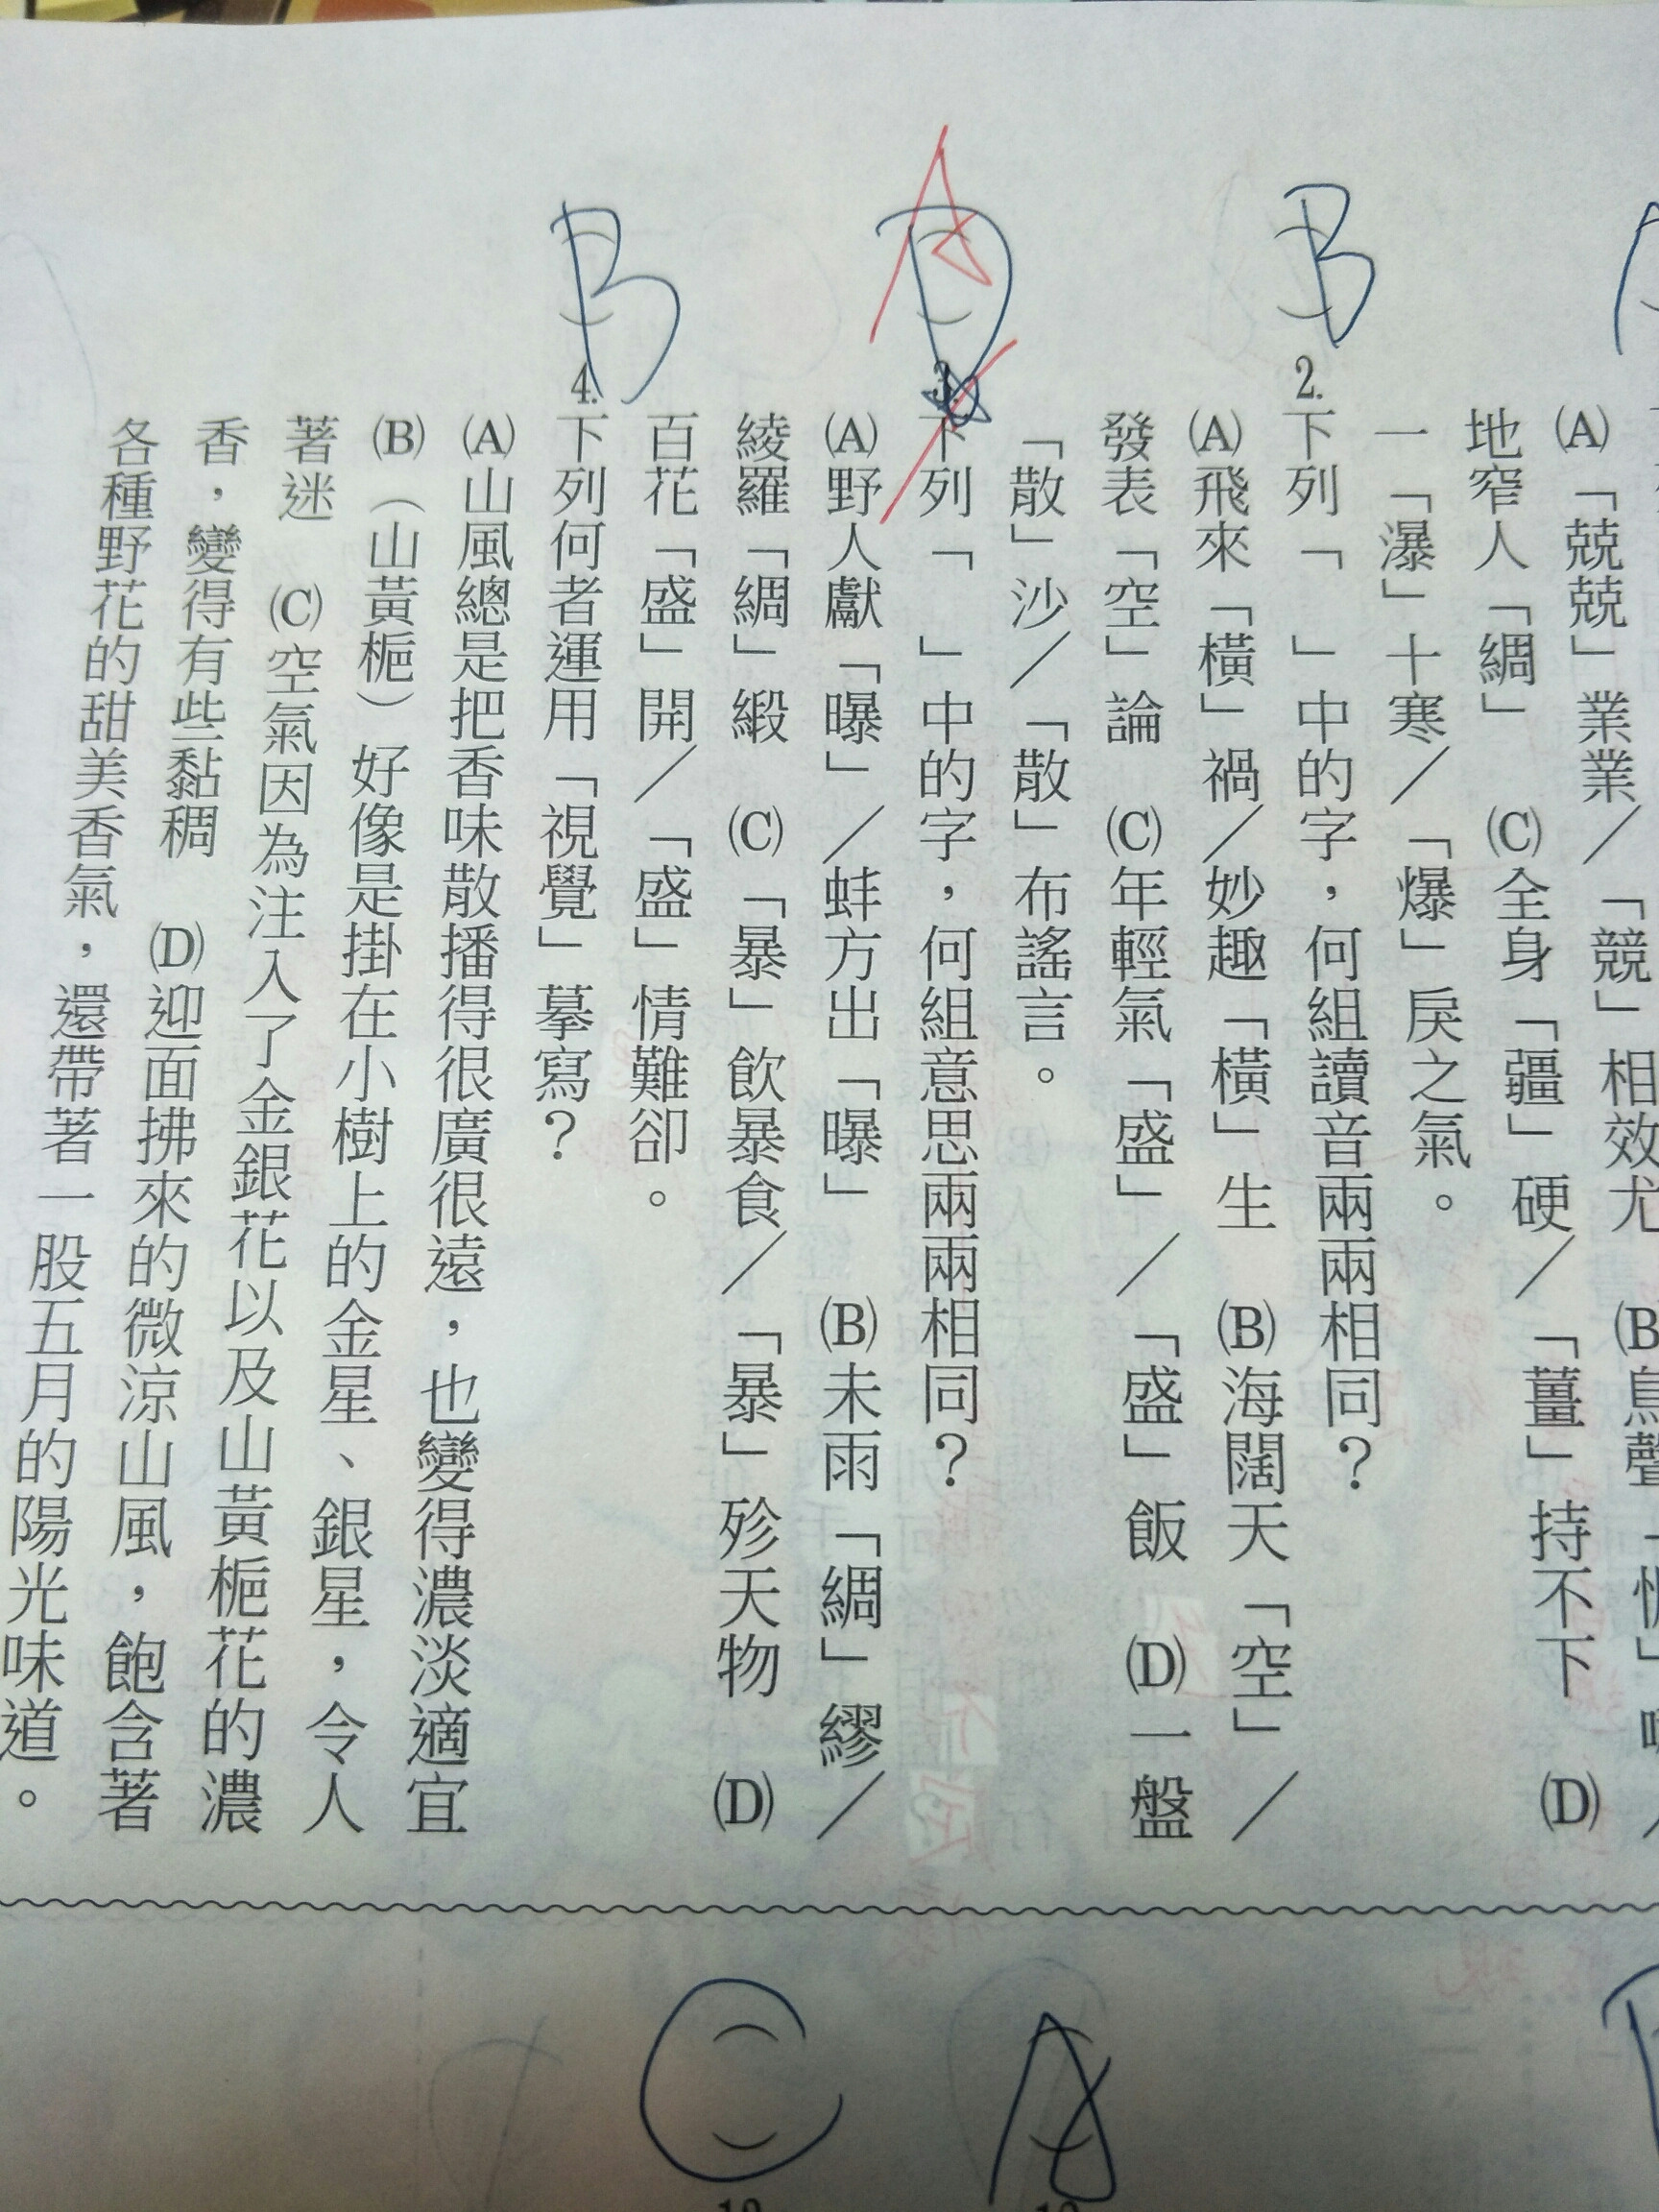 (A)「兢兢」業業／「競」相效尤 (B)鳥聲
地窄人「綢」 (C)全身「疆」硬／「薑」持不下 (D)
一「瀑」十寒／「爆」戾之氣。
B 2. 下列「 」中的字，何組讀音兩兩相同？
(A)飛來「橫」禍／妙趣「橫」生 (B)海闊天「空」／
發表「空」論 (C)年輕氣「盛」／「盛」飯 (D)一盤
「散」沙／「散」布謠言。
D A 3. 下列「 」中的字，何組意思兩兩相同？
(A)野人獻「曝」／蚌方出「曝」 (B)未雨「綢」繆／
綾羅「綢」緞 (C)「暴」飲暴食／「暴」殄天物 (D)
百花「盛」開／「盛」情難卻。
B 4. 下列何者運用「視覺」摹寫？
(A)山風總是把香味散播得很廣很遠，也變得濃淡適宜
(B)（山黃梔）好像是掛在小樹上的金星、銀星，令人
著迷 (C)空氣因為注入了金銀花以及山黃梔花的濃
香，變得有些黏稠 (D)迎面拂來的微涼山風，飽含著
各種野花的甜美香氣，還帶著一股五月的陽光味道。
A
C